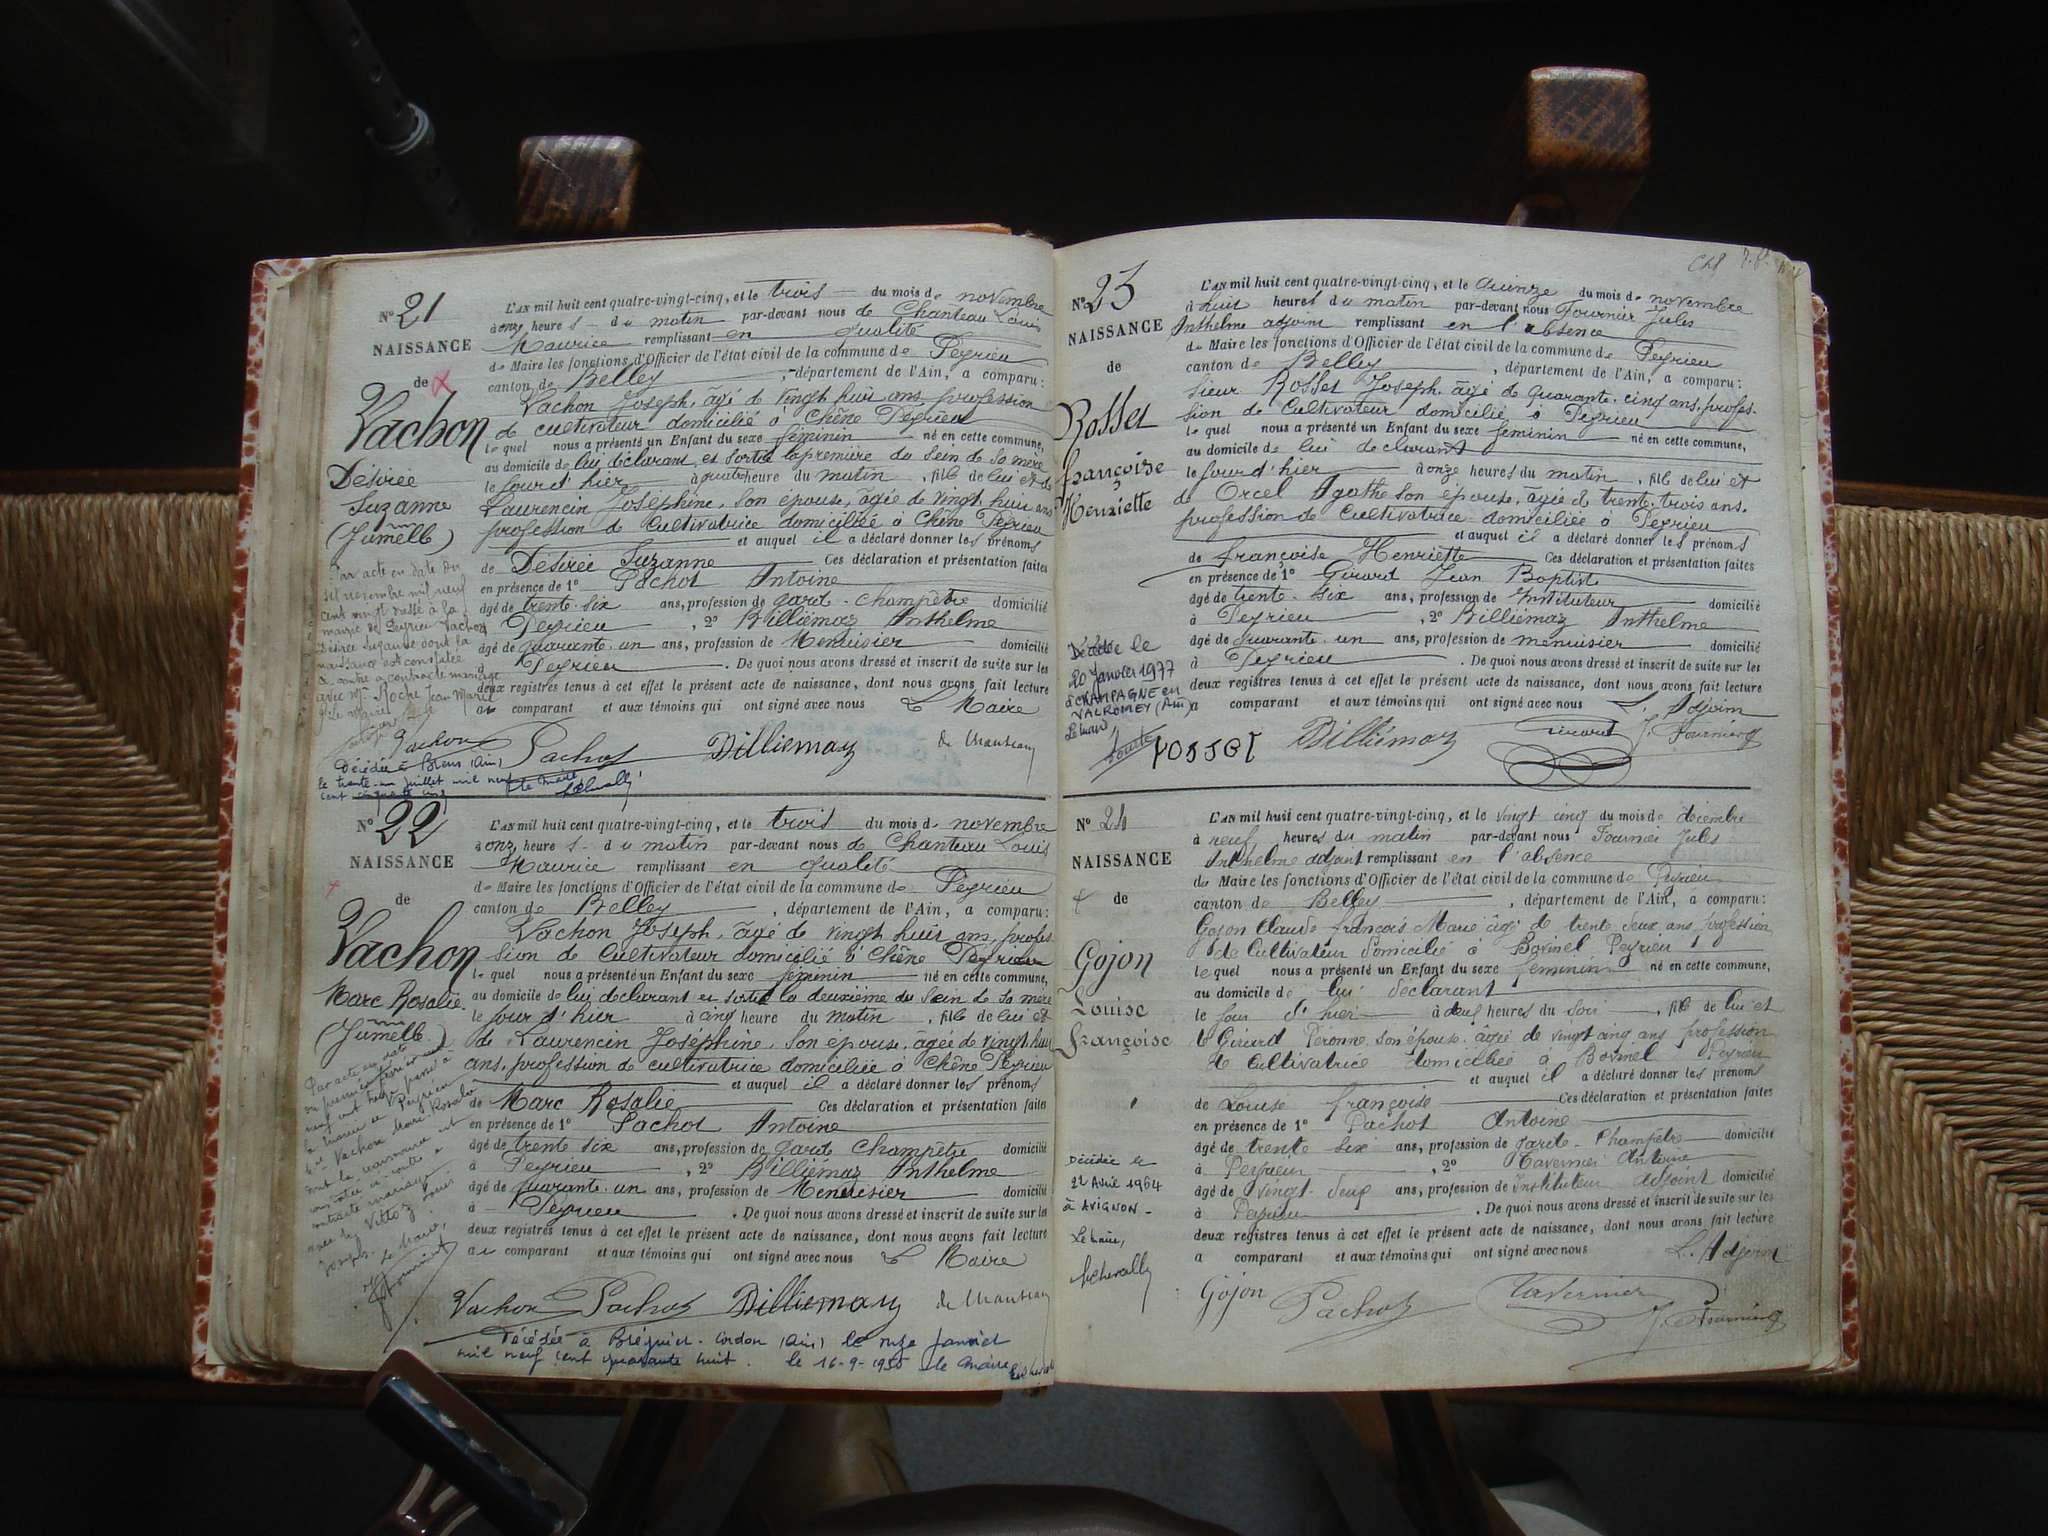 N° 21
NAISSANCE
de
Vachon
Désirée
Suzanne
(Jumelle)
L'AN mil huit cent quatre-vingt-cinq, et le trois du mois de novembre
à onze heures du matin par-devant nous de Chanteau Louis
Maurice remplissant en qualité
de Maire les fonctions d'Officier de l'état civil de la commune de Peyrieu
canton de Belley, département de l'Ain, a comparu:
Vachon Joseph, âgé de vingt huit ans profession
de cultivateur domicilié à Chêne Peyrieu
lequel nous a présenté un Enfant du sexe féminin né en cette commune,
au domicile de lui déclarant et sortie la première du sein de sa mère
le jour d'hier à quatre heure du matin, fille de lui et de
Laurencin Joséphine, son épouse, âgée de vingt huit ans
profession de Cultivatrice domiciliée à Chêne Peyrieu
et auquel il a déclaré donner les prénoms
de Désirée Suzanne Ces déclaration et présentation faites
en présence de 1° Pachot Antoine
âgé de trente-six ans, profession de gard-champêtre domicilié
à Peyrieu, 2° Billiémaz Anthelme
âgé de quarante-un ans, profession de Menuisier domicilié
à Peyrieu. De quoi nous avons dressé et inscrit de suite sur les
deux registres tenus à cet effet le présent acte de naissance, dont nous avons fait lecture
au comparant et aux témoins qui ont signé avec nous Le Maire
Par acte en date du
six novembre mil neuf
cent vingt
mairie de Peyrieu Vachon
Désirée Suzanne dont la
naissance est constatée
ci-contre a contracté mariage
avec Mr Roche Jean Marie
Le Maire
Vachon Pachot Billiemaz de Chanteau
Décédée à Brens (Ain)
le trente-un juillet mil neuf
cent cinquante cinq
Le Maire
N° 22
NAISSANCE
de
Vachon
Marc Rosalie
(Jumelle)
L'AN mil huit cent quatre-vingt-cinq, et le trois du mois de novembre
à onze heures du matin par-devant nous de Chanteau Louis
Maurice remplissant en qualité
de Maire les fonctions d'Officier de l'état civil de la commune de Peyrieu
canton de Belley, département de l'Ain, a comparu:
Vachon Joseph, âgé de vingt huit ans, profes-
sion de Cultivateur domicilié à Chêne Peyrieu
lequel nous a présenté un Enfant du sexe féminin né en cette commune,
au domicile de lui déclarant et sortie la deuxième du sein de sa mère
le jour d'hier à cinq heure du matin, fille de lui et
de Laurencin Joséphine, son épouse, âgée de vingt huit
ans, profession de cultivatrice domiciliée à Chêne Peyrieu
et auquel il a déclaré donner les prénoms
de Marc Rosalie Ces déclaration et présentation faites
en présence de 1° Pachot Antoine
âgé de trente six ans, profession de gard champêtre domicilié
à Peyrieu, 2° Billiémaz Anthelme
âgé de quarante-un ans, profession de Menuisier domicilié
à Peyrieu. De quoi nous avons dressé et inscrit de suite sur les
deux registres tenus à cet effet le présent acte de naissance, dont nous avons fait lecture
au comparant et aux témoins qui ont signé avec nous Le Maire
Par acte en date
du premier
neuf cent
la mairie de Peyrieu
Vachon Marc Rosalie
dont la naissance est
constatée ci-contre a
contracté mariage
avec Vittoz Louis
Joseph. Le Maire,
Vachon Pachot Billiemaz de Chanteau
Décédée à Brégnier-Cordon (Ain) le onze janvier
mil neuf cent quarante huit. le 16-9-1955 le Maire
N° 23
NAISSANCE
de
Rosset
Françoise
Henriette
L'AN mil huit cent quatre-vingt-cinq, et le quinze du mois de novembre
à huit heures du matin par-devant nous Fournier Jules
Anthelme adjoint remplissant en l'absence
de Maire les fonctions d'Officier de l'état civil de la commune de Peyrieu
canton de Belley, département de l'Ain, a comparu:
sieur Rosset Joseph, âgé de quarante-cinq ans, profes-
sion de Cultivateur domicilié à Peyrieu
lequel nous a présenté un Enfant du sexe féminin né en cette commune,
au domicile de lui déclarant
le jour d'hier à onze heures du matin, fille de lui et
de Orcel Agathe son épouse, âgée de trente-trois ans.
profession de Cultivatrice domiciliée à Peyrieu
et auquel il a déclaré donner les prénoms
de Françoise Henriette Ces déclaration et présentation faites
en présence de 1° Girard Jean Baptiste
âgé de trente-six ans, profession de Instituteur domicilié
à Peyrieu, 2° Billiémaz Anthelme
âgé de quarante-un ans, profession de menuisier domicilié
à Peyrieu. De quoi nous avons dressé et inscrit de suite sur les
deux registres tenus à cet effet le présent acte de naissance, dont nous avons fait lecture
au comparant et aux témoins qui ont signé avec nous L'Adjoint
Décédée le
20 janvier 1977
à CHAMPAGNE en
VALROMEY (Ain)
Le Maire
ROSSET Billiémaz Girard J. Fournier
N° 24
NAISSANCE
de
Gojon
Louise
Françoise
L'AN mil huit cent quatre-vingt-cinq, et le vingt cinq du mois de décembre
à neuf heures du matin par-devant nous Fournier Jules
Anthelme adjoint remplissant en l'absence
de Maire les fonctions d'Officier de l'état civil de la commune de Peyrieu
canton de Belley, département de l'Ain, a comparu:
Gojon Claude François Marie âgé de trente deux ans, profession
de Cultivateur domicilié à Bovinel Peyrieu
lequel nous a présenté un Enfant du sexe féminin né en cette commune,
au domicile de lui déclarant
le jour d'hier à deux heures du soir, fille de lui et
de Girard Péronne son épouse, âgée de vingt cinq ans profession
de Cultivatrice domiciliée à Bovinel Peyrieu
et auquel il a déclaré donner les prénoms
de Louise Françoise Ces déclaration et présentation faites
en présence de 1° Pachot Antoine
âgé de trente six ans, profession de garde-Champêtre domicilié
à Peyrieu, 2° Tavernier Antoine
âgé de vingt-deux ans, profession de Instituteur adjoint domicilié
à Peyrieu. De quoi nous avons dressé et inscrit de suite sur les
deux registres tenus à cet effet le présent acte de naissance, dont nous avons fait lecture
a comparant et aux témoins qui ont signé avec nous L'Adjoint
Décédée le
22 Avril 1964
à AVIGNON -
Le Maire,
Gojon Pachot Tavernier J. Fournier